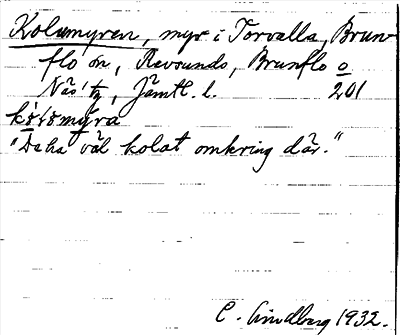 Kolamyren, myr i Torvalla, Brun-
flo sn, Revsunds, Brunflo o
Näs' tg, Jämtl. l. 201
"De ha väl kolat omkring där."
C. Lindberg 1932.